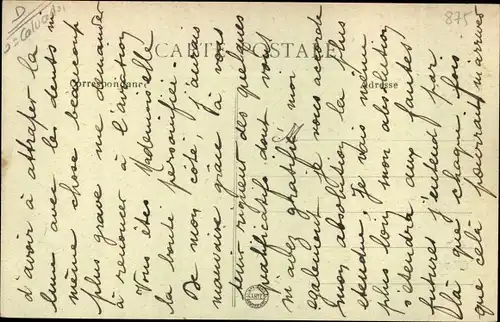 D
= Calvados
875
CARTE POSTALE
Correspondance
Adresse
d'avoir à attraper la
lune avec les dents ni
même chose beaucoup
plus grave me demander
à renoncer à l'aviation
Vous êtes Mademoiselle
la bonté personnifiée.
De mon côté, j'aurais
mauvaise grâce à vous
tenir rigueur des quelques
qualificatifs dont vous
m'avez gratifié moi
également je vous accorde
mon absolution la plus
étendue. Je vais même
plus loin, mon absolution
s'étendra aux fautes
futures, j'entends par
là que chaque fois
que cela pourrait m'arriver